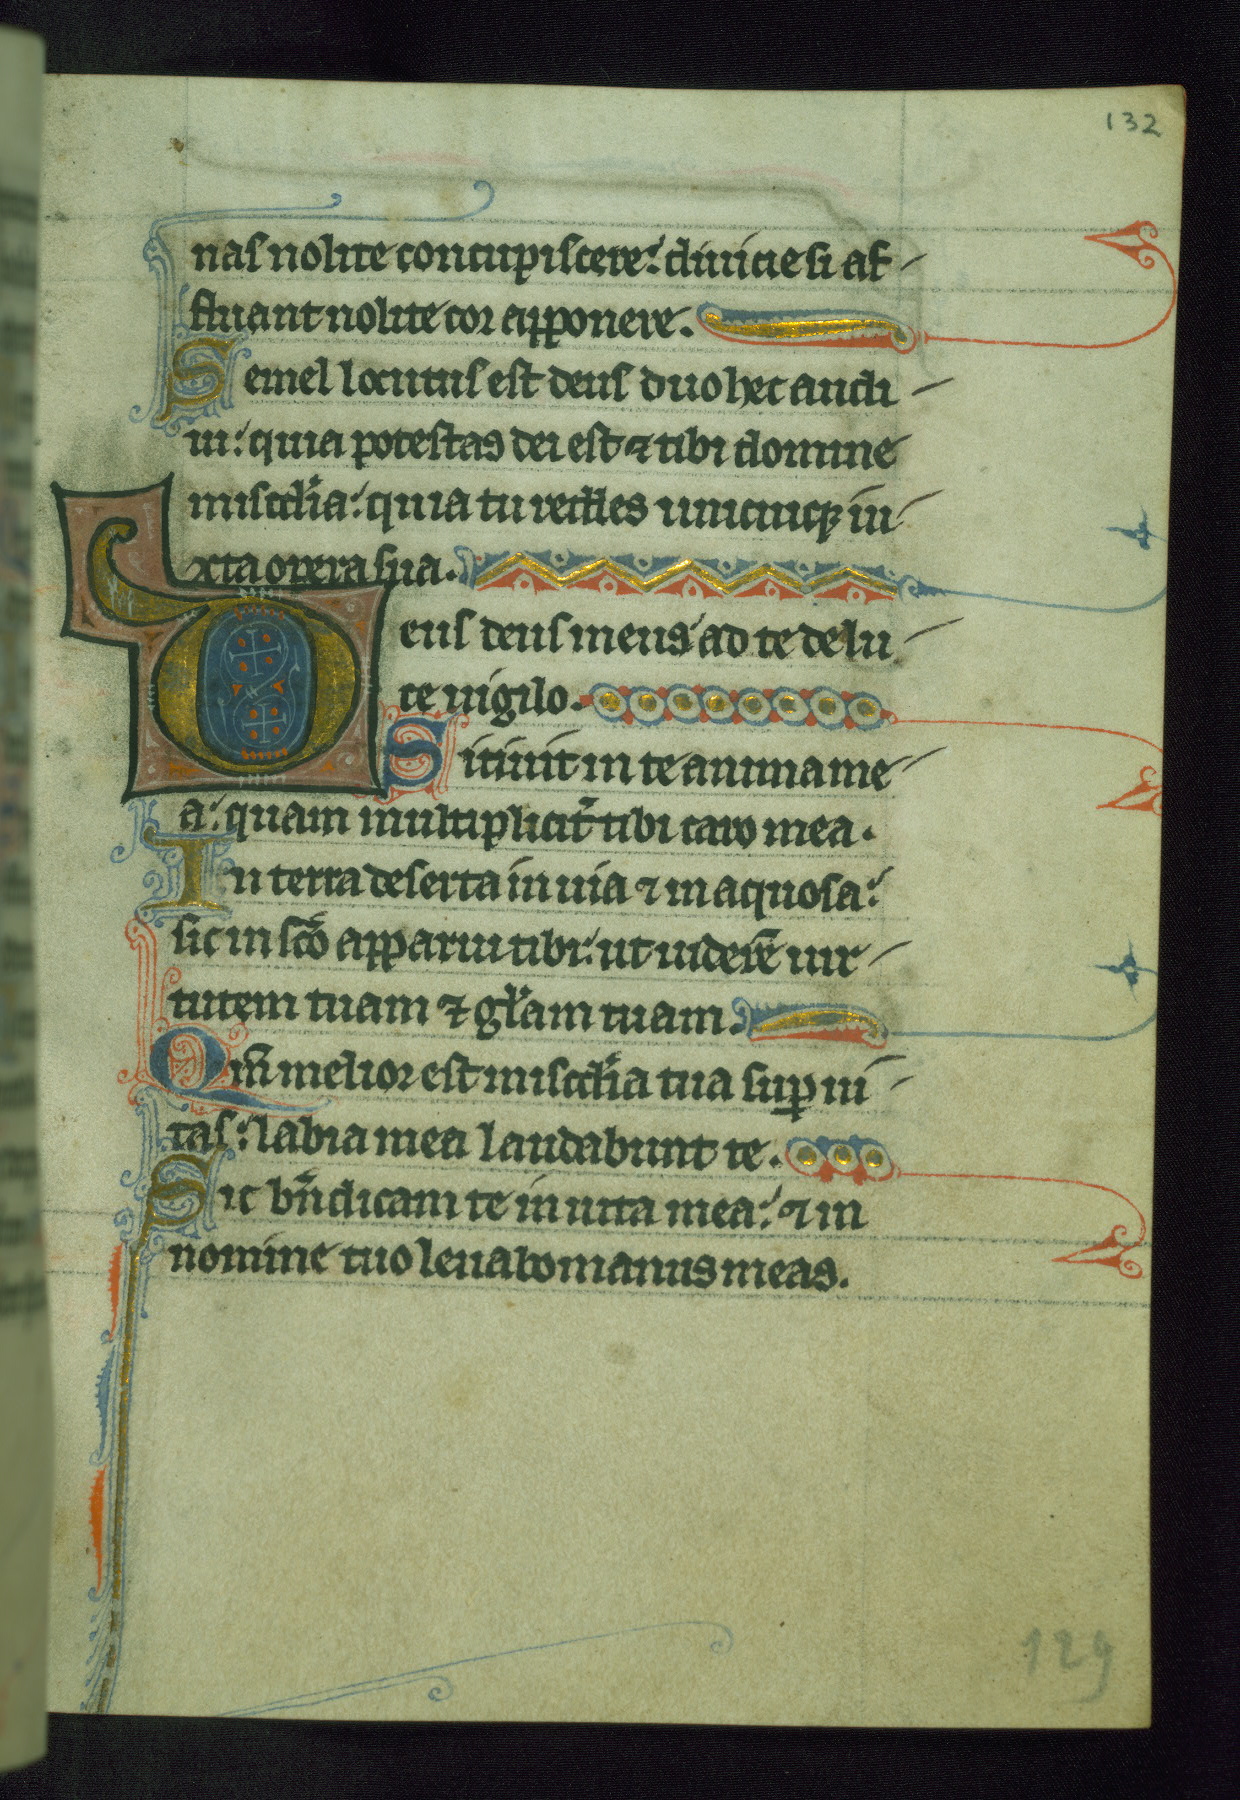 132
nas nolite concupiscere: diuicie si af
fluant nolite cor apponere.
Semel locutus est deus duo hec audi
ui: quia potestas dei est ⁊ tibi domine
mis̃cdia: quia tu reddes unicuiqꝫ iu
xta opera sua.
Deus deus meus ad te de lu
ce uigilo.
Sitiuit in te anima me
a: quam multiplicit̃ tibi caro mea.
In terra deserta in uia ⁊ in aquosa:
sic in sc̃o apparui tibi: ut uiderẽ uir
tutem tuam ⁊ gl̃am tuam.
Qm̃ melior est mis̃cdia tua suꝑ ui
tas: labia mea laudabunt te.
Sic bñdicam te in uita mea: ⁊ in
nomine tuo leuabo manus meas.
129